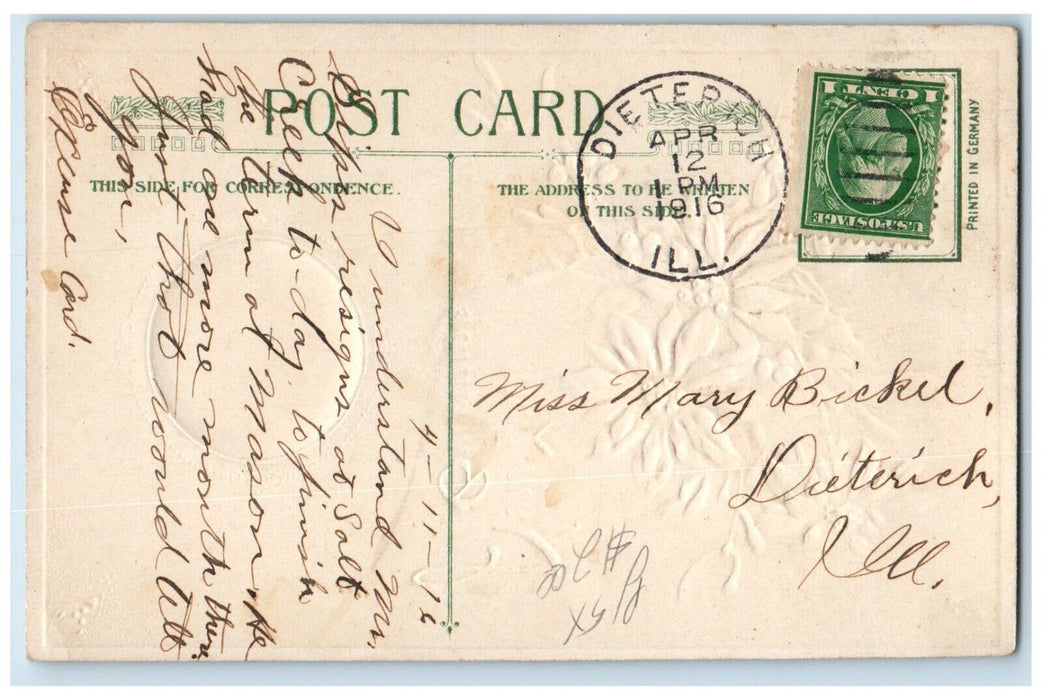 POST CARD
THIS SIDE FOR CORRESPONDENCE.
THE ADDRESS TO BE WRITTEN
ON THIS SIDE
DIETERICH
APR
12
1 PM
1916
ILL.
1 CENT 1
U.S. POSTAGE
PRINTED IN GERMANY
4-11-16
I understand Mr.
resigns at Salt
Creek to-day, to finish
the term at Mason. He
had one more month there.
Just thot would tell
you,
Excuse Card.
Miss Mary Bickel,
Dieterich,
Ill.